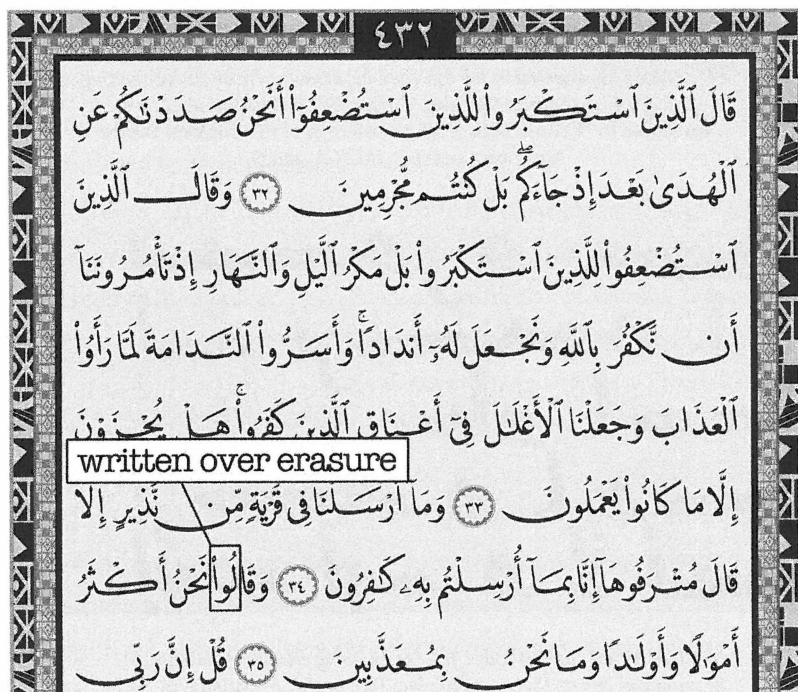 ٤٣٢
قَالَ ٱلَّذِينَ ٱسْتَكْبَرُوا۟ لِلَّذِينَ ٱسْتُضْعِفُوٓا۟ أَنَحْنُ صَدَدْنَٰكُمْ عَنِ
ٱلْهُدَىٰ بَعْدَ إِذْ جَآءَكُمۖ بَلْ كُنتُم مُّجْرِمِينَ ٣٢ وَقَالَ ٱلَّذِينَ
ٱسْتُضْعِفُوا۟ لِلَّذِينَ ٱسْتَكْبَرُوا۟ بَلْ مَكْرُ ٱلَّيْلِ وَٱلنَّهَارِ إِذْ تَأْمُرُونَنَآ
أَن نَّكْفُرَ بِٱللَّهِ وَنَجْعَلَ لَهُۥٓ أَندَادًاۚ وَأَسَرُّوا۟ ٱلنَّدَامَةَ لَمَّا رَأَوُا۟
ٱلْعَذَابَ وَجَعَلْنَا ٱلْأَغْلَٰلَ فِىٓ أَعْنَاقِ ٱلَّذِينَ كَفَرُوا۟ۚ هَلْ يُجْزَوْنَ
written over erasure
إِلَّا مَا كَانُوا۟ يَعْمَلُونَ ٣٣ وَمَآ أَرْسَلْنَا فِى قَرْيَةٍ مِّن نَّذِيرٍ إِلَّا
قَالَ مُتْرَفُوهَآ إِنَّا بِمَآ أُرْسِلْتُم بِهِۦ كَٰفِرُونَ ٣٤ وَقَالُوا۟ نَحْنُ أَكْثَرُ
أَمْوَٰلًا وَأَوْلَٰدًا وَمَا نَحْنُ بِمُعَذَّبِينَ ٣٥ قُلْ إِنَّ رَبِّى